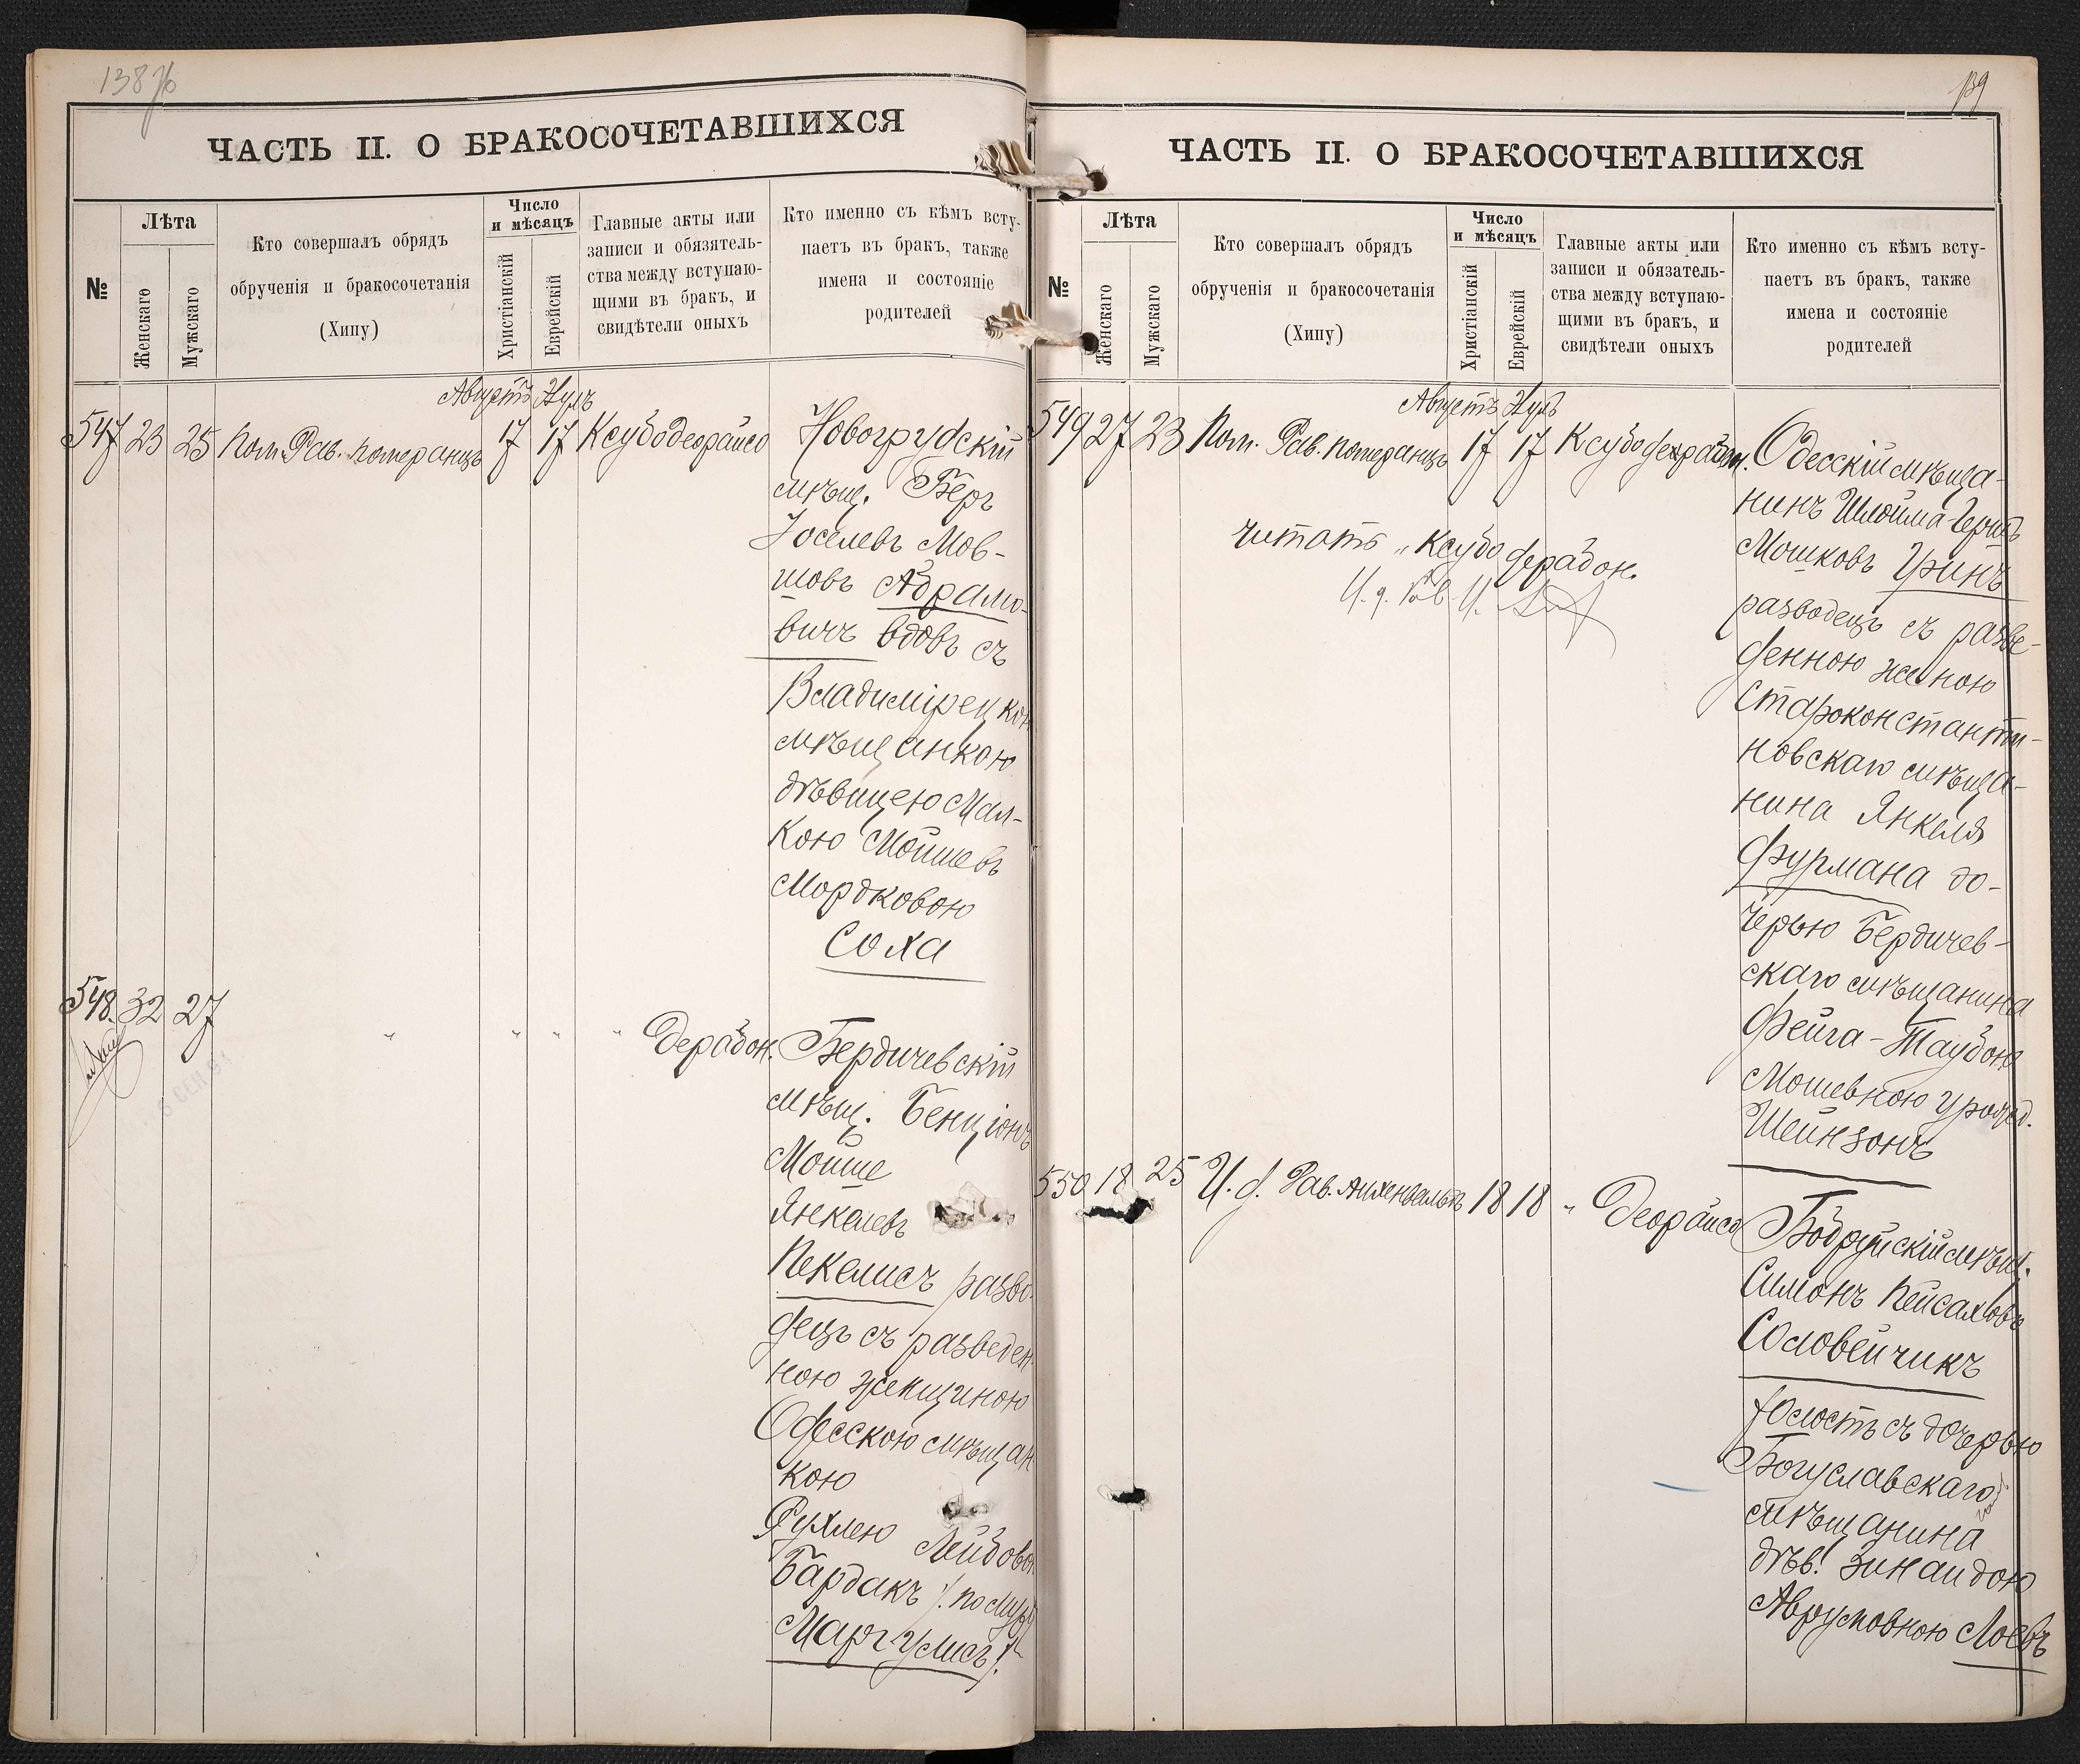 138
ЧАСТЬ II. О БРАКОСОЧЕТАВШИХСЯ
№
Лѣта
Женскаго
Мужскаго
Кто совершалъ обрядъ
обрученія и бракосочетанія
(Хипу)
Число
и мѣсяцъ
Христіанскій
Еврейскій
Главные акты или
записи и обязятель-
ства между вступаю-
щими въ бракъ, и
свидѣтели оныхъ
Кто именно съ кѣмъ всту-
паетъ въ бракъ, также
имена и состояніе
родителей
Августъ
547 23 25 Пом. Рав. Померанцъ 17 17 Ксубо деорайсо
Новогрудскій
мѣщ. Бер
Іоселевъ Мов-
шовъ Абрамо-
вичъ вдовъ съ
Владимірецкою
мѣщанкою
дѣвицею Мал-
кою Мойшевъ
Мордковою
Соха
548. 32 27 " " " " Дерабон.
6 СЕН. 91
Бердичевскій
мѣщ. Бенціонъ
Мойше
Янкелевъ
Пекелисъ разво-
децъ съ разведен-
ною женщиною
Одесскою мѣщан-
кою
Рухлею Лейбовой
Бардакъ /. по мужу
Маргулисъ /.
139
ЧАСТЬ II. О БРАКОСОЧЕТАВШИХСЯ
№
Лѣта
Женскаго
Мужскаго
Кто совершалъ обрядъ
обрученія и бракосочетанія
(Хипу)
Число
и мѣсяцъ
Христіанскій
Еврейскій
Главные акты или
записи и обязатель-
ства между вступаю-
щими въ бракъ, и
свидѣтели оныхъ
Кто именно съ кѣмъ всту-
паетъ въ бракъ, также
имена и состояніе
родителей
Августъ
549 27 23 Пом. Рав. Померанцъ 17 17 Ксубо дерабон.
читать „Ксубо дерабон.
Одесскій мѣща-
нинъ Шлойма
Мошковъ Уринъ
разводецъ съ разве-
денною женою
Староконстанти-
новскаго мѣща-
нина Янкеля
Фурмана до-
черью Бердичев-
скаго мѣщанина
Фейга-Таубою
Мошевною урожд.
Шейнзонъ
550 18 25 И. д. Рав. 18 18 " Деорайсо
Бобруйскій мѣщ.
Симонъ Пейсаховъ
Соловейчикъ
холостъ съ дочерью
Богуславскаго
мѣщанина
дѣв. Зинаидою
Аврумовною Лоевъ